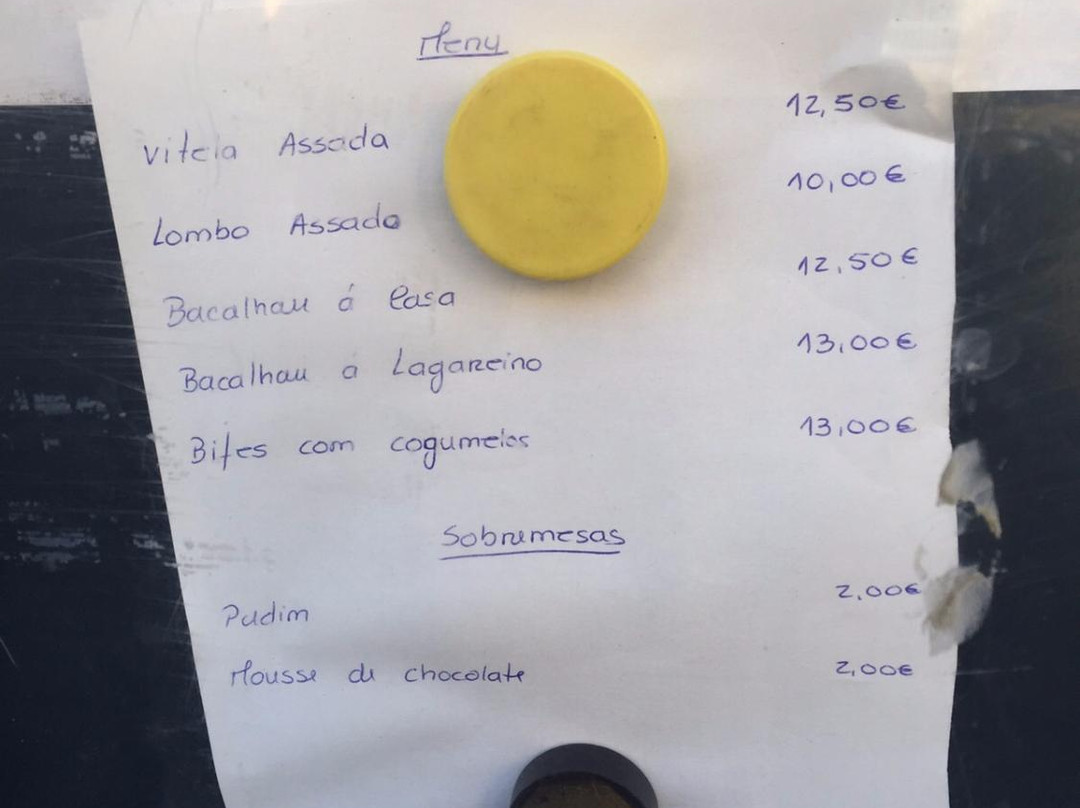 Menu
Vitela Assada 12,50€
Lombo Assado 10,00€
Bacalhau á Casa 12,50€
Bacalhau a Lagareiro 13,00€
Bifes com cogumelos 13,00€
Sobremesas
Pudim 2,00€
Mousse de chocolate 2,00€